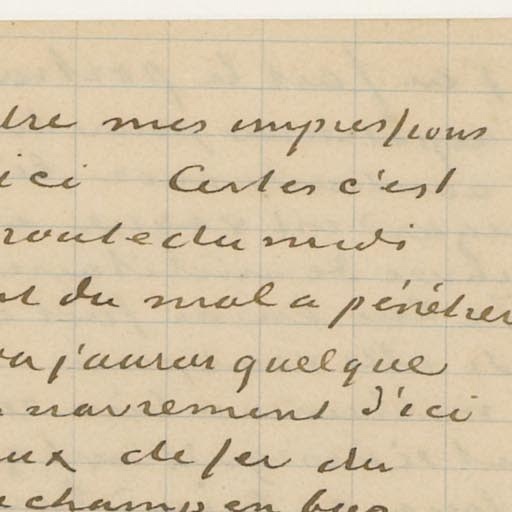 dre mes impressions
ici Certes c'est
route du midi
nt du mal a pénétrer
j'aurai quelque
d'ici
aux de fer du
champ en bas